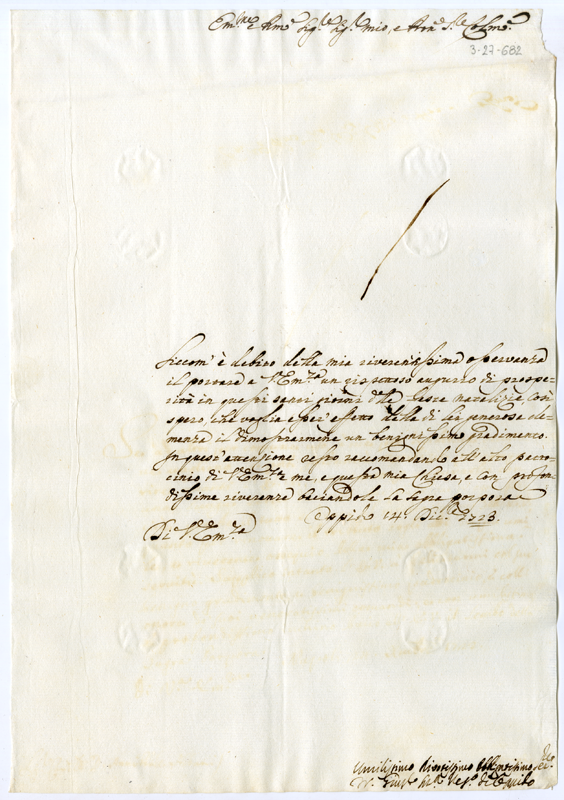 Em.mo e Rmo Sig.re Sig.r mio, e Pron S.re Colmo.
3-27-682
Siccom' è debito della mia riverentissima osservanza
il portare a V. Em.za un rispettoso augurio di prospe-
rità in questi sacri giorni delle feste natalizie, così
spero, che voglia esser effetto della di lei generosa cle-
menza il dimostrarmene un benignissimo gradimento.
In quest'attenzione resto raccomandando all'alto patro-
cinio di V. Em.za me, e questa mia Chiesa, e con profon-
dissima riverenza baciandole la sagra porpora
Oppido 14. Dic.e 1723.
Di V. Em.za
Umilissimo Divotissimo Obblig.mo
Vesc.o di Oppido